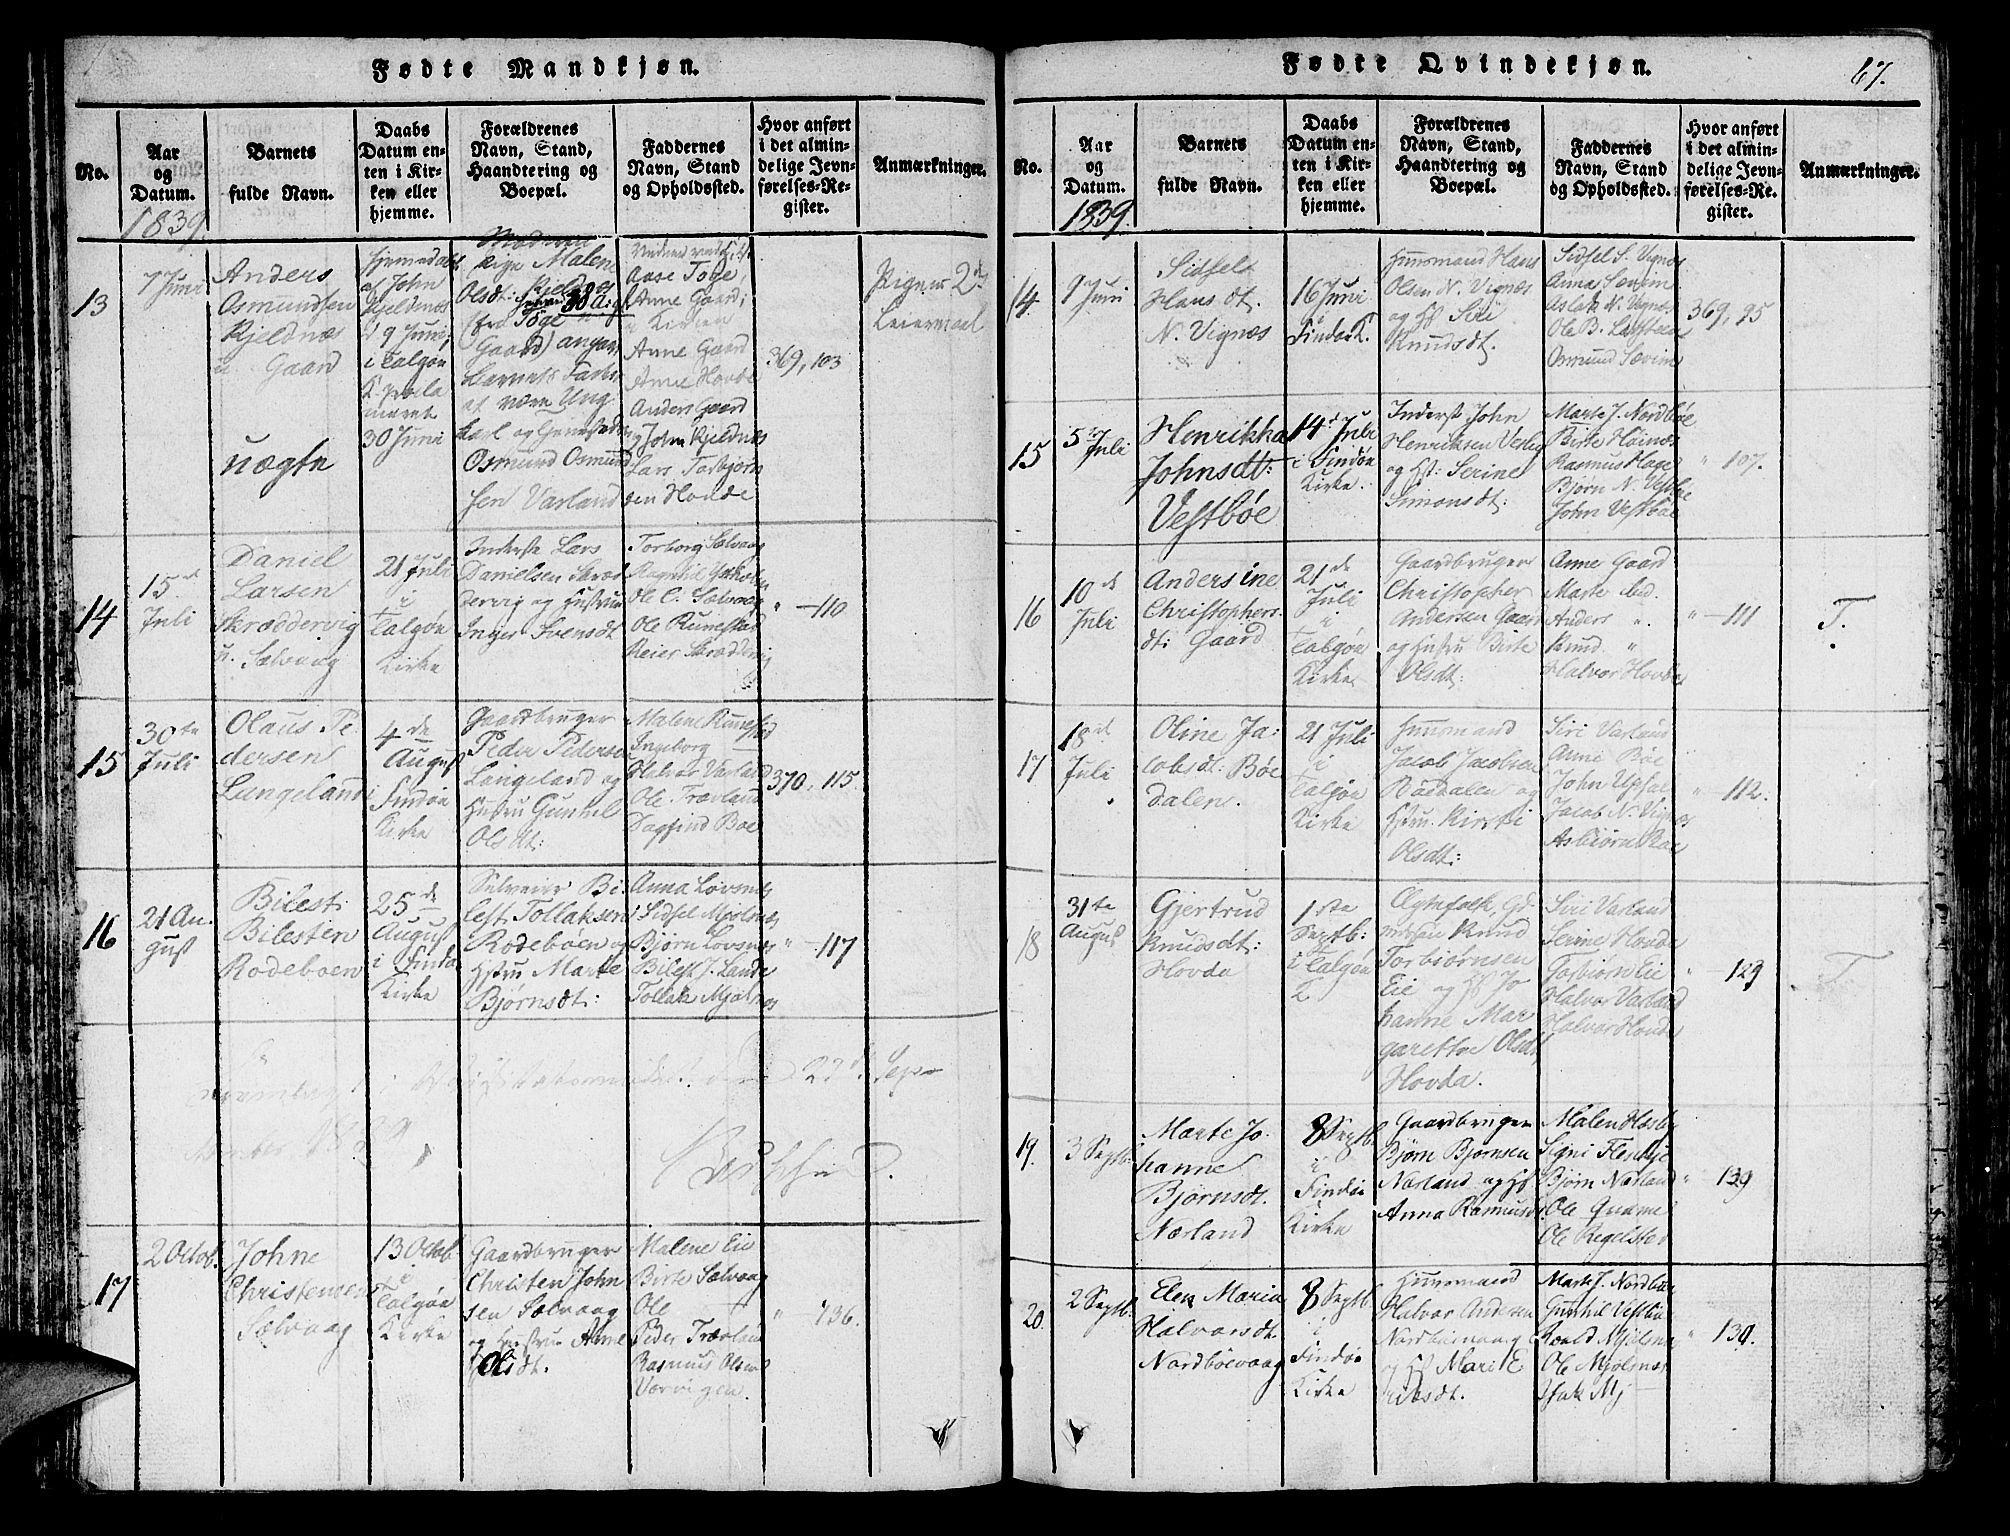 Fødte Mandkjøn.
No.
Aar
og
Datum.
1839.
Barnets
fulde Navn.
Daabs
Datum en-
ten i Kir-
ken eller
hjemme.
Forældrenes
Navn, Stand,
Haandtering og
Boepæl.
Faddernes
Navn, Stand
og Opholdssted.
Hvor anført
i det almin-
delige Jevn-
førelses-Re-
gister.
Anmærkninger.
13
7 Juni
Anders
Osmundsen
Kjeldnæs
Gaard
uægte
Hjemmedøbt
af John
Kjeldnes
9 Juni
i Talgøe
K.
30 Juni
Pige Malene
Olsdt: Kjeldnes
Gaard) angav
Barnets Fader
at være Ung
karl og
Osmund Osmund
sen Varland
Aase Toge,
Anne Gaard,
Kirken
Anne Gaard
Anne Hovde
Anders Gaard
John Kjeldnæs
Lars Torbjørn
sen Hovde
369, 103
Pigens 2d
Leiermaal
14
15de
Juli
Daniel
Larsen
Skræddervig
n. Sælvaag
21 Juli
i
Talgøe
Kirke
Inderste Lars
Danielsen Skræd
dervig og Hustru
Inger Svensdt
Torborg Sælvaag
Ole C. Sælvaag
Ole Runestad
Reier Skræddervig
" —110
15
30te
Juli
Olaus Pe
dersen
Langeland
4de
August
Findøe
Kirke
Gaardbruger
Peder Pedersen
Langeland og
Hustru Gunhil
Olsdt:
Malene Runestad
Ingeborg —
Halvor Varland
Ole Trærland
Dagfind Boe
370, 115.
16
21 Au,
gust
Bilest
Bilesten
Rodeboen
25de
August
i Findø
Kirke
Selveier Bi
lest Tollaksen
Rodebøen og
Hstru Marte
Bjørnsdt:
Anna Lovsnes
Sidsel Mjølsnæs
Bjørn Lovsnes
Bilest J. Lande
Tollak Mjølsnæs
" —117
23d Sep-
1839
17
2 Octob.
Johne
Christensen
Sælvaag
13 Octob
i
Talgøe
Kirke
Gaardbruger
Christen John
sen Sælvaag
og Hustru Anne
Olsdt.
Malene Eie
Birte Sælvaag
Ole —
Peder Trærland
Rasmus Olsen
Varvigen.
" 136.
Fødte Qvindekjøn.
67.
No.
Aar
og
Datum.
1839.
Barnets
fulde Navn.
Daabs
Datum en-
ten i Kir-
ken eller
hjemme.
Forældrenes
Navn, Stand,
Haandtering og
Boepæl.
Faddernes
Navn, Stand
og Opholdssted.
Hvor anført
i det almin-
delige Jevn-
førelses-Re-
gister.
Anmærkninger.
14
9 Juni
Sidsel
Hans dt.
N. Vignæs
16 Juni
Findø K.
Huusmand Hans
Olsen N. Vignæs
og Hst Siri
Knudsdt.
Sidsel S. Vignæs
Anna Sævim
Aslak N. Vignes
Ole B. Ladstein
Osmund Sævim
369, 95
15
5te
Juli
Henrikka
Johnsdt:
Vestbøe
14d Juli
i Findøe
Kirke.
Inderst John
Henriksen Vestb
og Hst: Serine
Simonsdt:
Marte J. Nordbøe
Birte Høinæs
Rasmus Hage
Bjørn N. Vestbø
John Vestbøe
" 107.
16
10de
Juli
Andersine
Christophers
dt: Gaard
21de
Juli
i
Talgøe
Kirke
Gaardbruger
Christopher
Andersen Gaard
og Hustru Birte
Olsdt:
Anne Gaard
Marte ibid.
Anders ".
Knud "
Halvor Hovda
" —111
T.
17
18de
Juli
Oline Ja:
cobsdt: Bøe
dalen.
21 Juli
i
Talgøe
Kirke
Huusmand
Jacob Jacobsen
Bøedalen og
Hstru. Kirsti
Olsdt:
Siri Varland
Anne Bøe
John Upsal
Jacob N. Vignæs
Asbiørn Bøe
" —112.
18
31te
August
Gjertrud
Knudsdt:
Hovda
1ste
Septb:
i Talgøe
K
Ægtefolk, Gd
Knud
Torbiørnsen
Eie og Hst Jo
hanne Mar
garethe Olsdt
Hovda.
Siri Varland
Serine Hovda
Torbiørn Eie
Halvor Varland
Halvor Hovda
" —129
T.
19.
3 Septb.
Marte Jo.
hanne
Bjørnsdt.
Nærland
8 Septb.
i
Findøe
Kirke
Gaardbruger
Bjørn Bjørnsen
Nærland og Hst
Anna Rasmusdt
Malen Hæsby
Signi Fleskje
Bjørn Nærland
Ole Qvame
Ole Regelstad
" 139
20.
2 Septb.
Elen Maria
Halvorsdt.
Nordbøevaag
8 Septb.
i
Findøe
Kirke
Huusmand
Halvor Andersen
Nordbøevaag
og Hst Mari E
riksdt.
Marte J. Nordbøe
Gunhil Vestbøe
Roald Mjølsnæs
Ole Mjølsnæs
Isak Mj —
" 130.